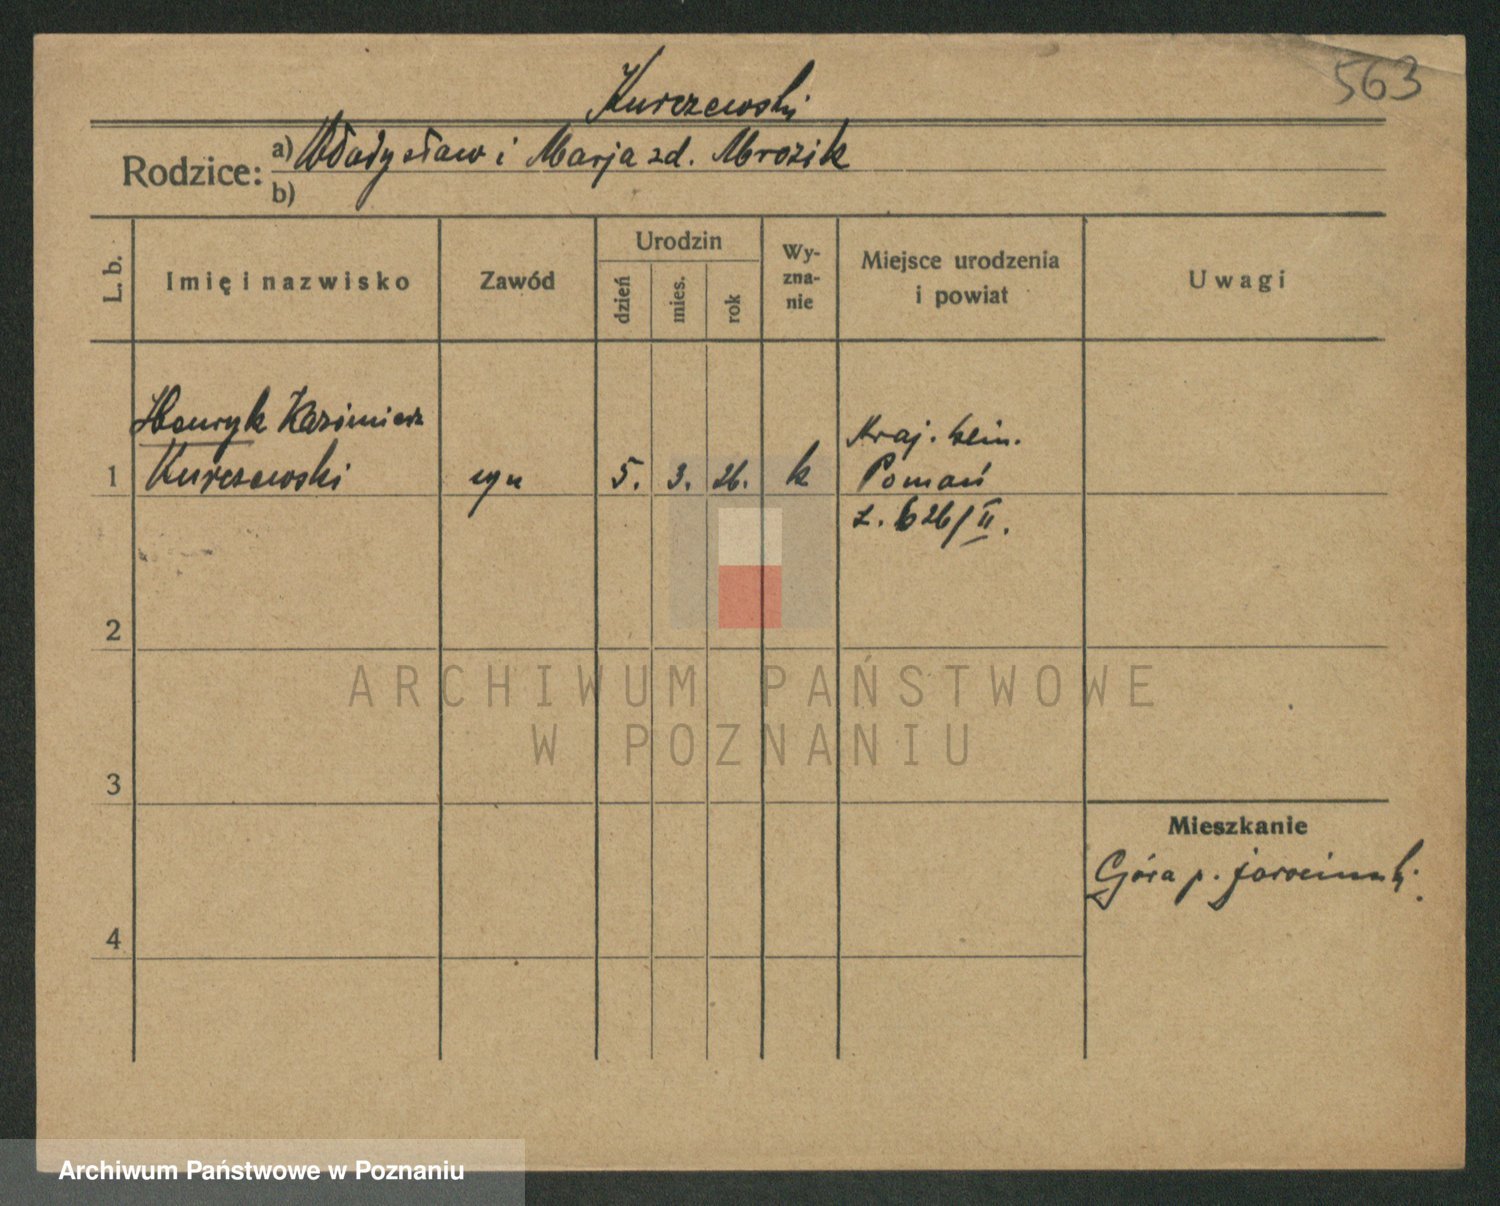 563
Kurczewski
Rodzice: a) Władysław i Marja zd. Mrozik
b)
L. b.
Imię i nazwisko
Zawód
Urodzin
dzień
mies.
rok
Wy-
zna-
nie
Miejsce urodzenia
i powiat
Uwagi
Henryk Kazimierz
1 Kurczewski syn 5. 3. 26. k
Kraj. klin.
Poznań
L. 626/II.
2
3
4
Mieszkanie
Góra p. jarocinski.
ARCHIWUM PAŃSTWOWE
W POZNANIU
Archiwum Państwowe w Poznaniu